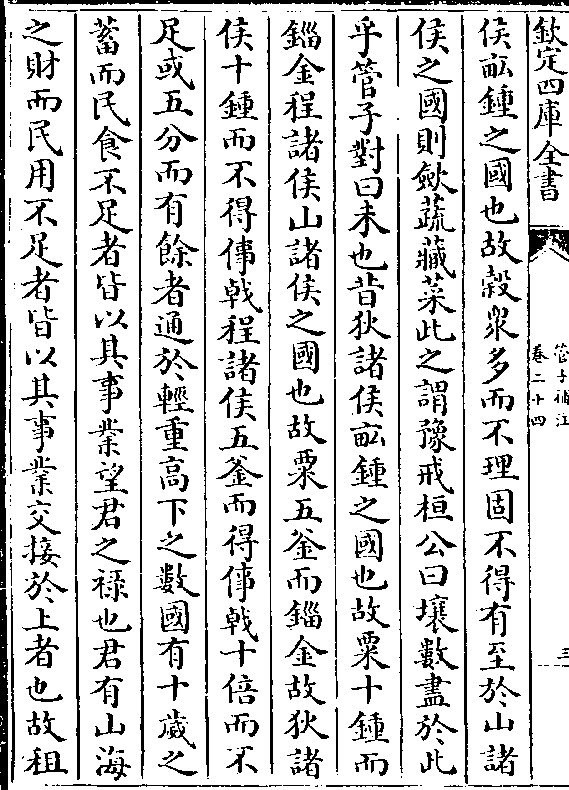 欽定四庫全書
管子補注
卷二十四
三
侯畝鍾之國也故穀衆多而不理固不得有至於山諸
侯之國則斂蔬藏菜此之謂豫戒桓公曰壤數盡於此
乎管子對曰未也昔狄諸侯畝鍾之國也故粟十鍾而
錙金程諸侯山諸侯之國也故粟五釜而錙金故狄諸
侯十鍾而不得倳戟程諸侯五釜而得倳戟十倍而不
足或五分而有餘者通於輕重高下之數國有十歲之
蓄而民食不足者皆以其事業望君之禄也君有山海
之財而民用不足者皆以其事業交接於上者也故租